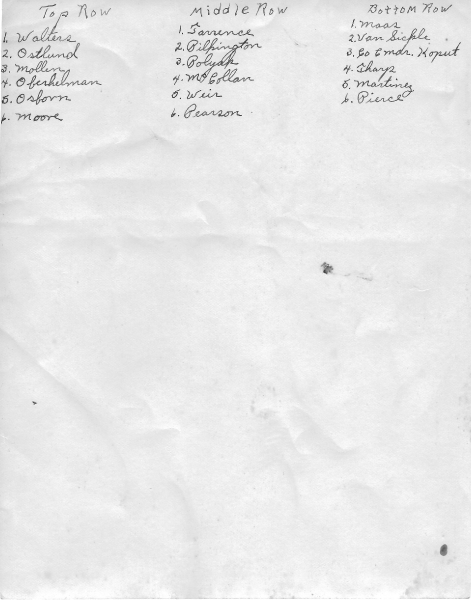 Top Row
1. Walters
2. Ostlund
3. Mollen
4. Oberhelman
5. Osborn
6. Moore
Middle Row
1. Torrence
2. Pilkington
3. Polyak
4. McCollan
5. Weir
6. Pearson
Bottom Row
1. Maas
2. Van Sickle
3. Co Cmdr. Koput
4. Tharp
5. Martinez
6. Pierce